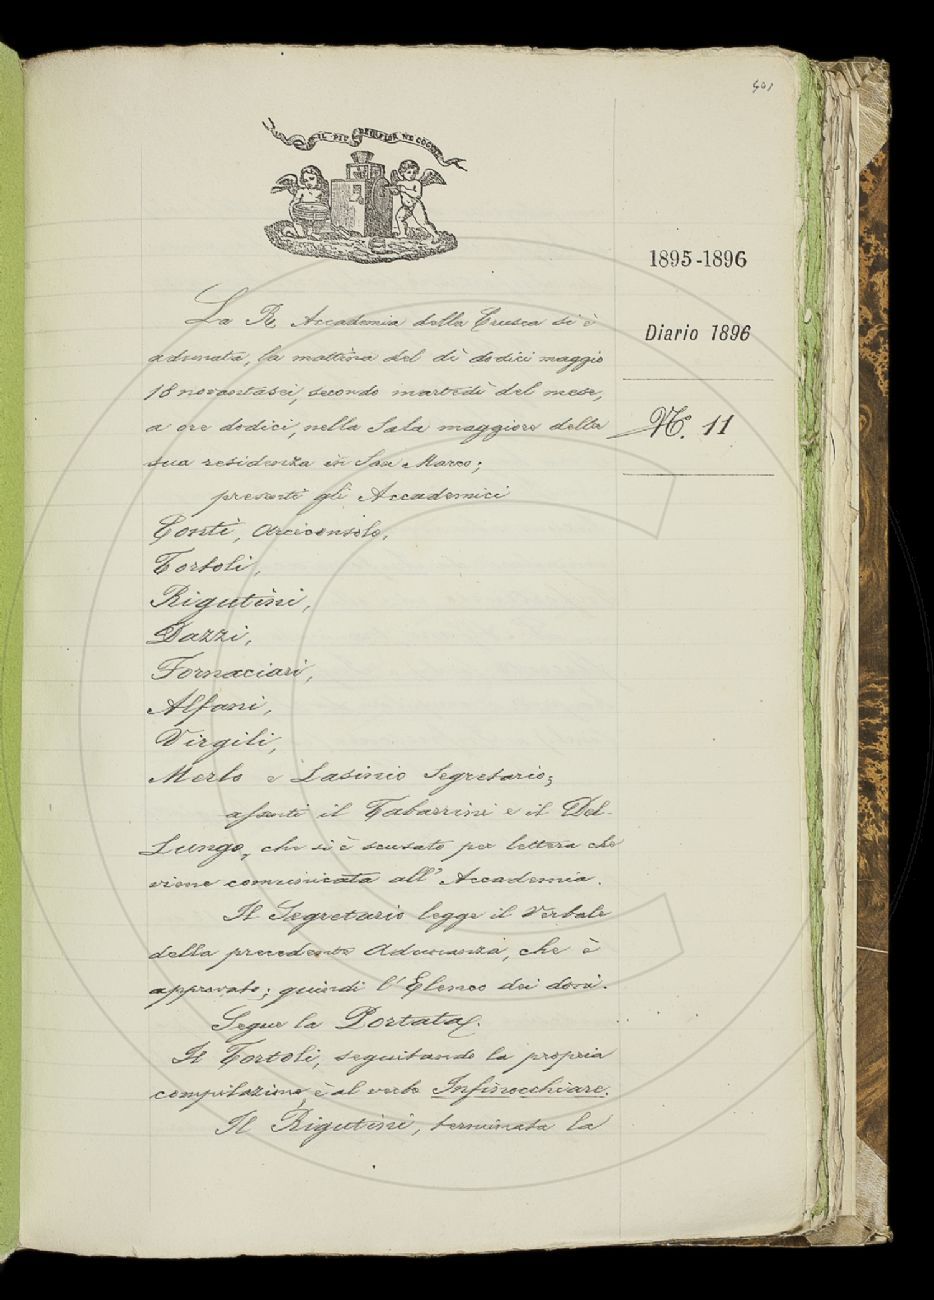 501
IL PIÙ BEL FIOR NE COGLIE
1895-1896
Diario 1896
N. 11
La R. Accademia della Crusca si è
adunata, la mattina del dì dodici maggio
18 novantasei, secondo martedì del mese,
a ore dodici, nella Sala maggiore della
sua residenza in San Marco;
presenti gli Accademici
Conti, Arciconsolo,
Tortoli,
Rigutini,
Dazzi,
Fornaciari,
Alfani,
Virgili,
Merlo e Lasinio Segretario;
assenti il Tabarrini e il Del-
Lungo, che si è scusato per lettera che
viene comunicata all'Accademia.
Il Segretario legge il Verbale
della precedente Adunanza, che è
approvato; quindi l'Elenco dei doni.
Segue la Portata.
Il Tortoli, seguitando la propria
compilazione, è al verbo Infinocchiare.
Il Rigutini, terminata la